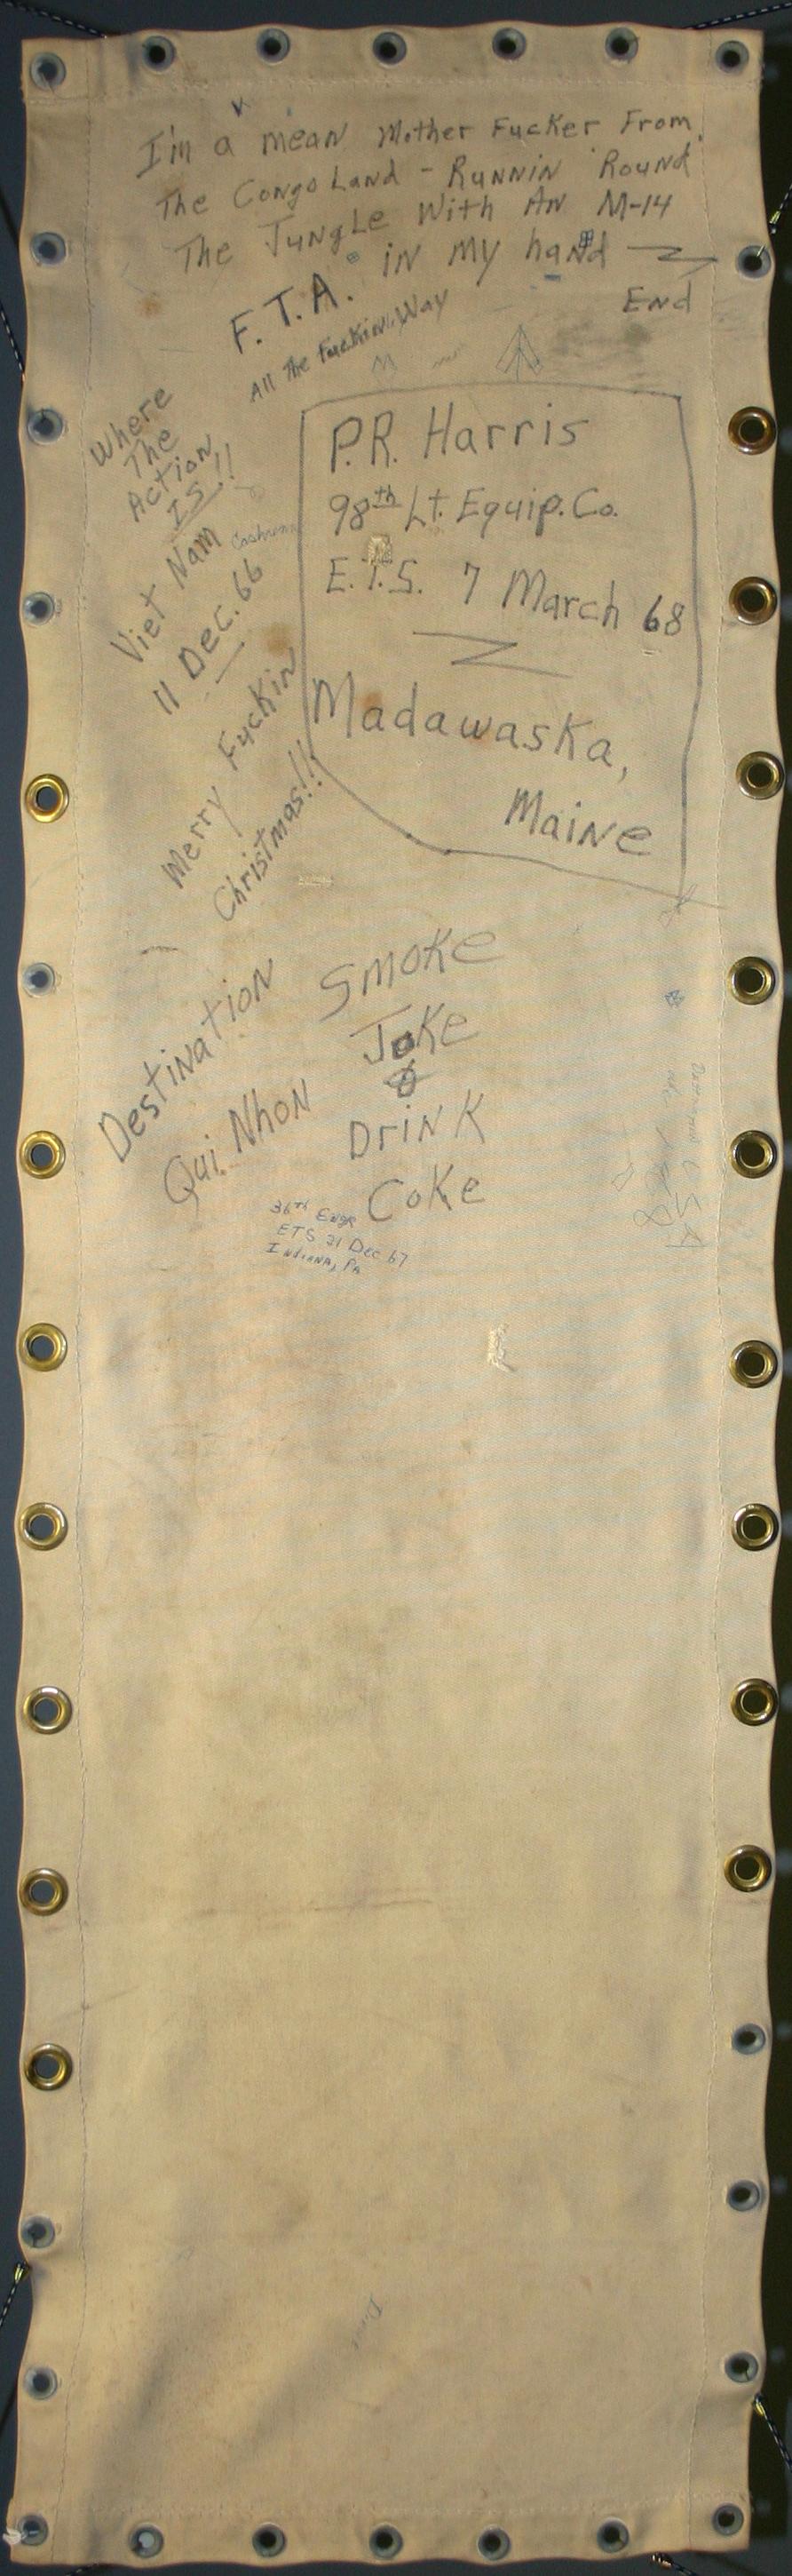 I'm a mean Mother Fucker From
The Congo Land - Runnin Round
The Jungle With An M-14
in my hand
End
F.T.A.
All The Fuckin Way
Where
The
Action
Is!!
Viet Nam
11 Dec. 66
Merry Fuckin
Christmas!!
P.R. Harris
98th Lt. Equip. Co.
E.T.S. 7 March 68
Madawaska,
Maine
Destination
Qui Nhon
Smoke
Joke
Drink
Coke
36th Engr
ETS 21 Dec 67
Indiana, PA